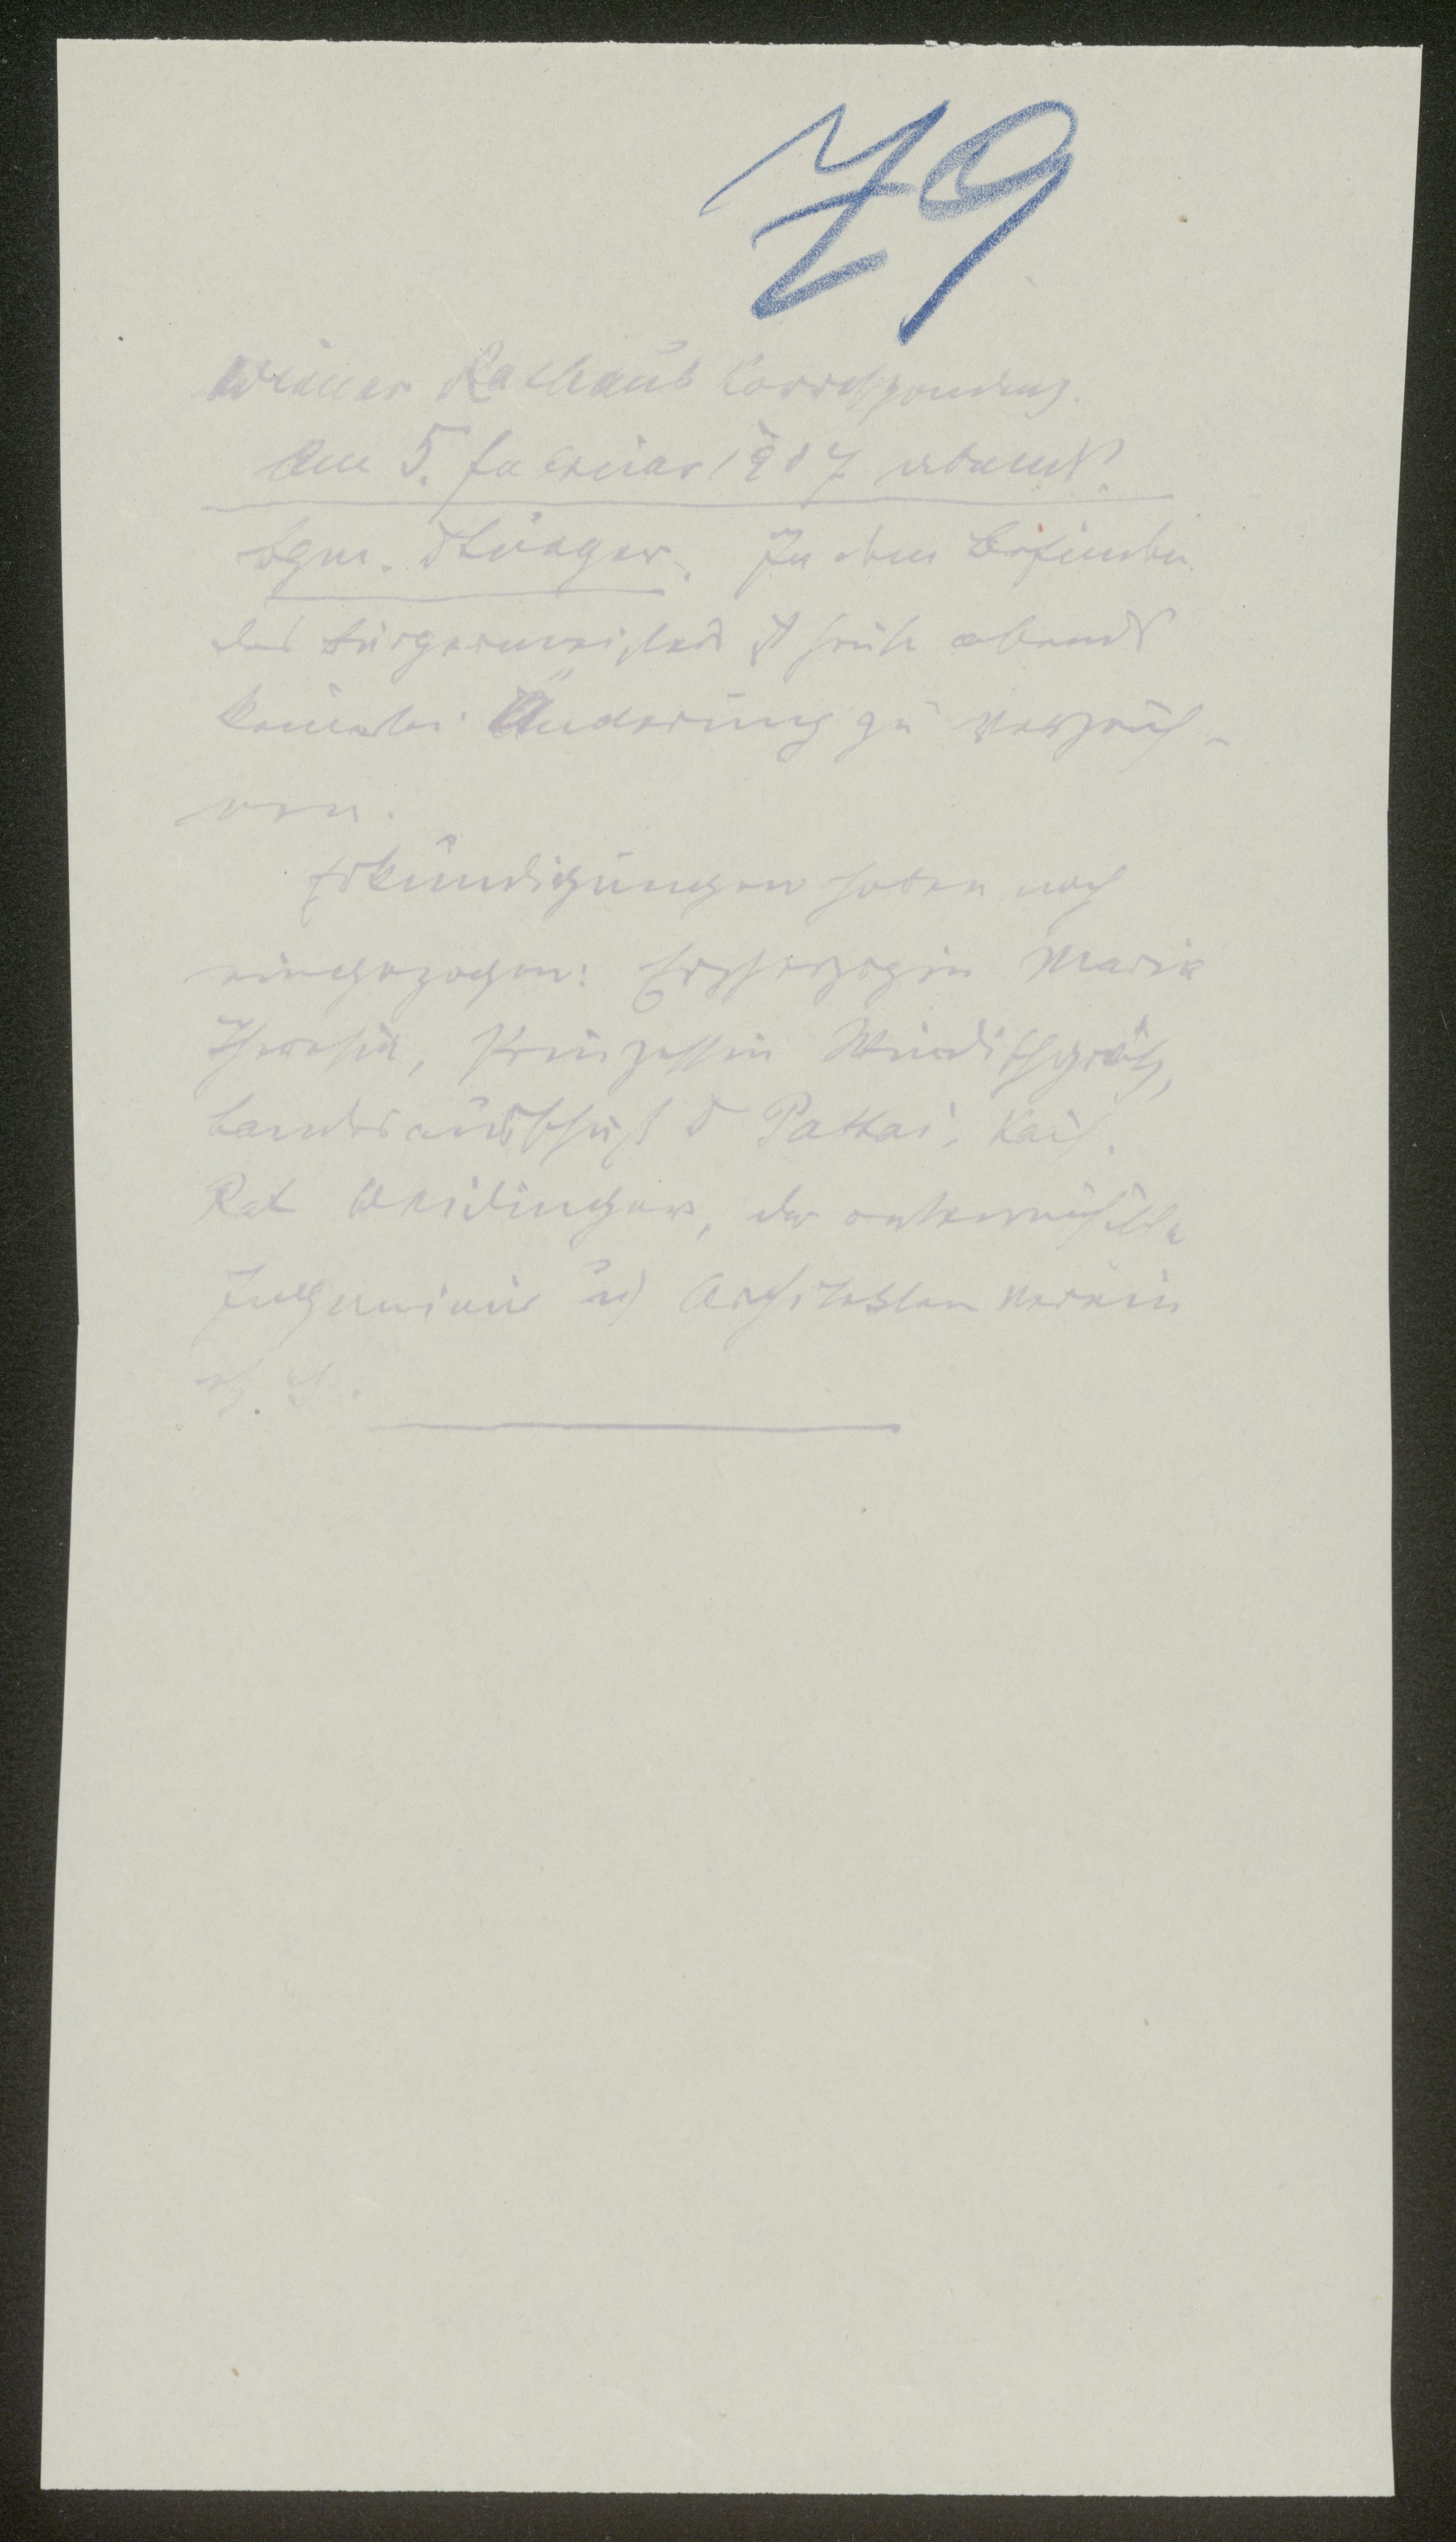 79
Wiener Rathaus Korrespondenz.
Am 5. Februar 1907 abends.
Bgm. Dr Lueger. In dem Befinden
des Bürgermeisters ist heute abends
keinerlei Änderung zu verzeich-
nen.
Erkundigungen haben noch
eingezogen: Erzherzogin Maria
Theresia, Prinzessin Windischgrätz,
Landesausschuß Dr Pattai, Kais.
Rat Weidinger, der österreichische
Ingenieur u Architekten Verein